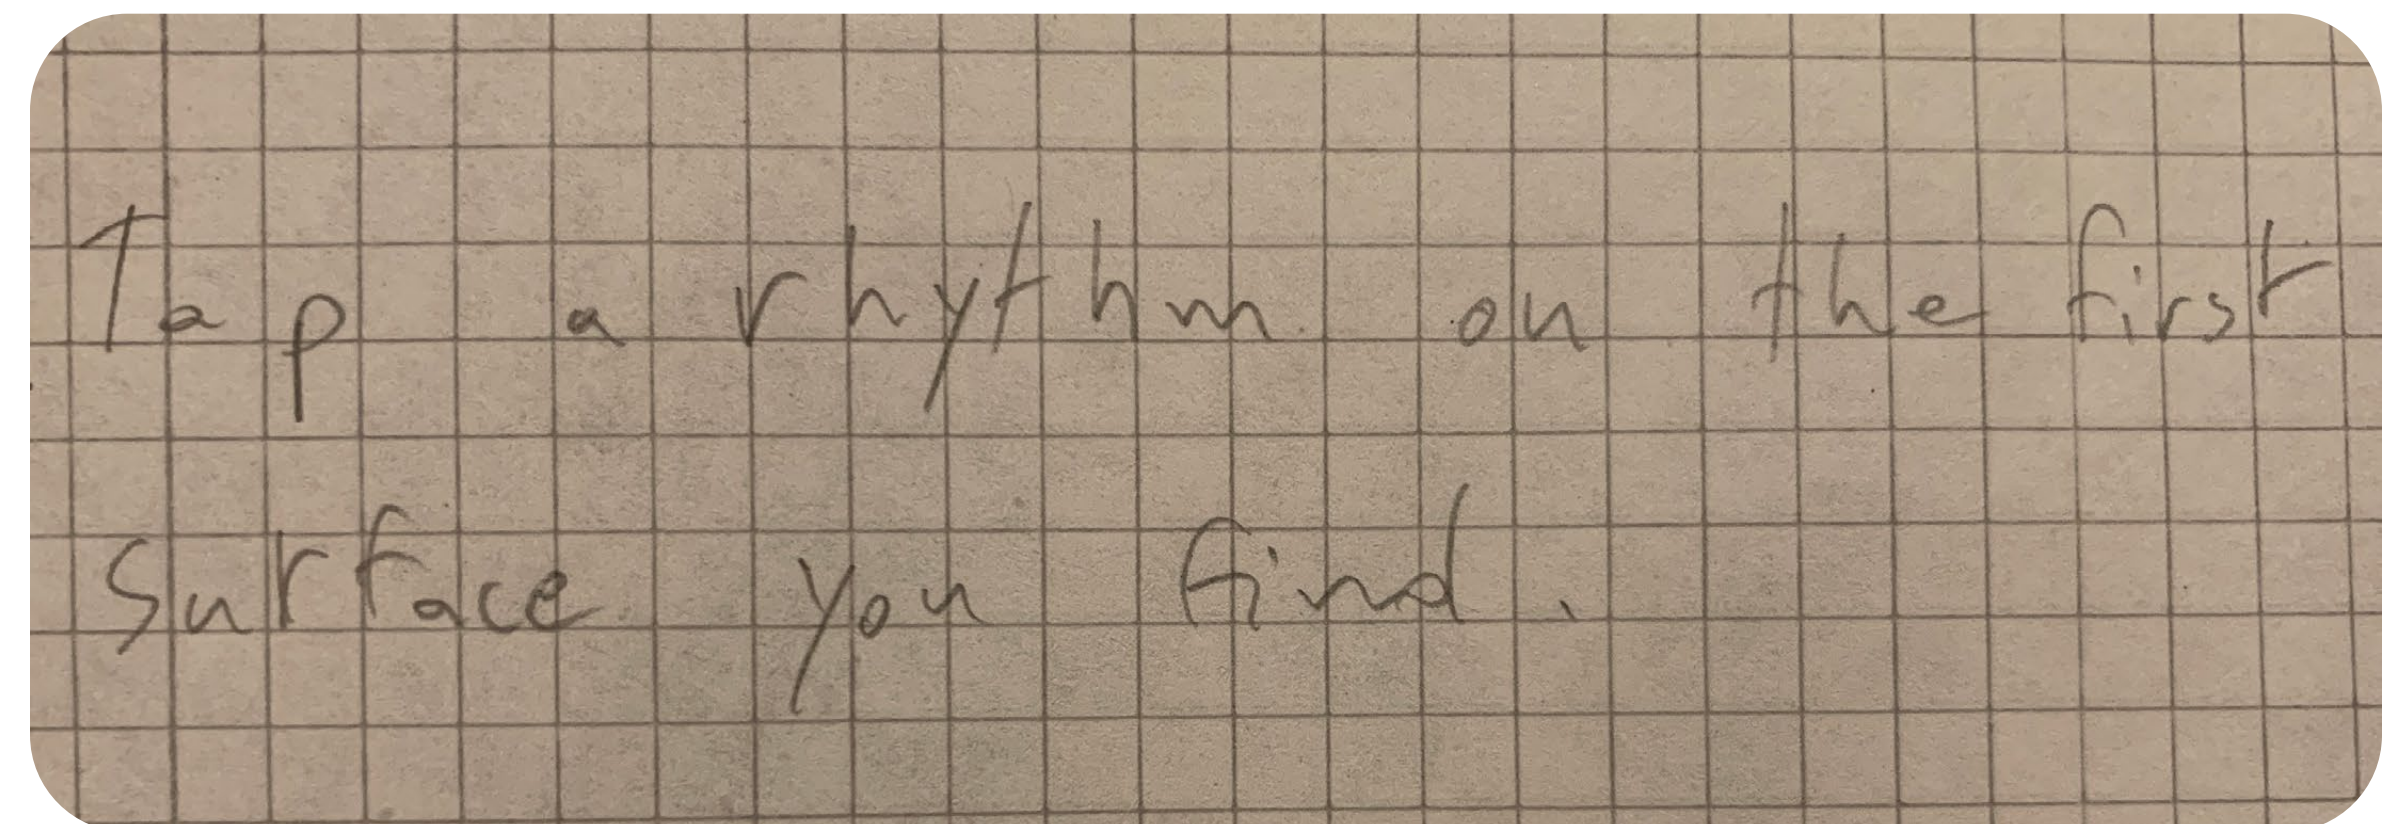 Tap a rhythm on the first
surface you find.